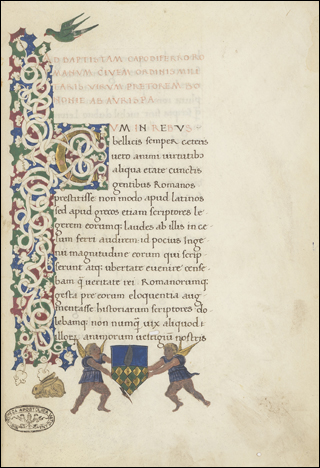 BAPTISTAM CAPODIFERRO RO
MANVM CIVEM ORDINIS MILI
TARIS VIRVM PRETOREM BO
NONIE AB AVRISPA
CVM IN REBVS
bellicis semper ceteris
uero animi uirtutib;
aliqua etate cunctis
gentibus Romanos
prestitisse non modo apud latinos
sed apud grecos etiam scriptores le
gerem eorumq; laudes ab illis in ce
lum ferri audirem: id pocius Inge
nii magnitudine eorum qui scrip
serunt atq; ubertate euenire cense
bam q̃ ueritate rei. Romanorumq;
gesta pre eorum eloquentia aug
mentasse historiarum scriptores do
lebamq; non numq̃ uix aliquod i
animorum uestigiũ nostris